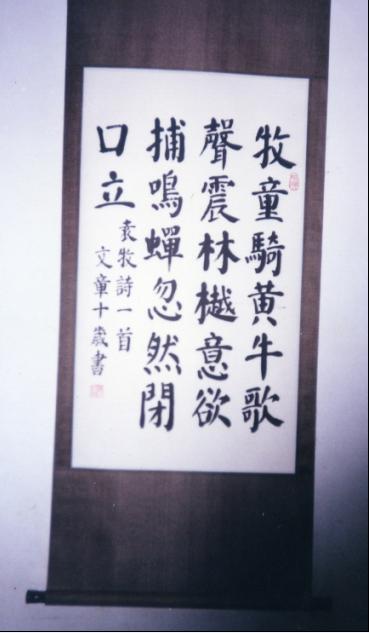 牧童騎黄牛歌
聲震林樾意欲
捕鳴蟬忽然閉
口立
袁牧詩一首
文章十歲書